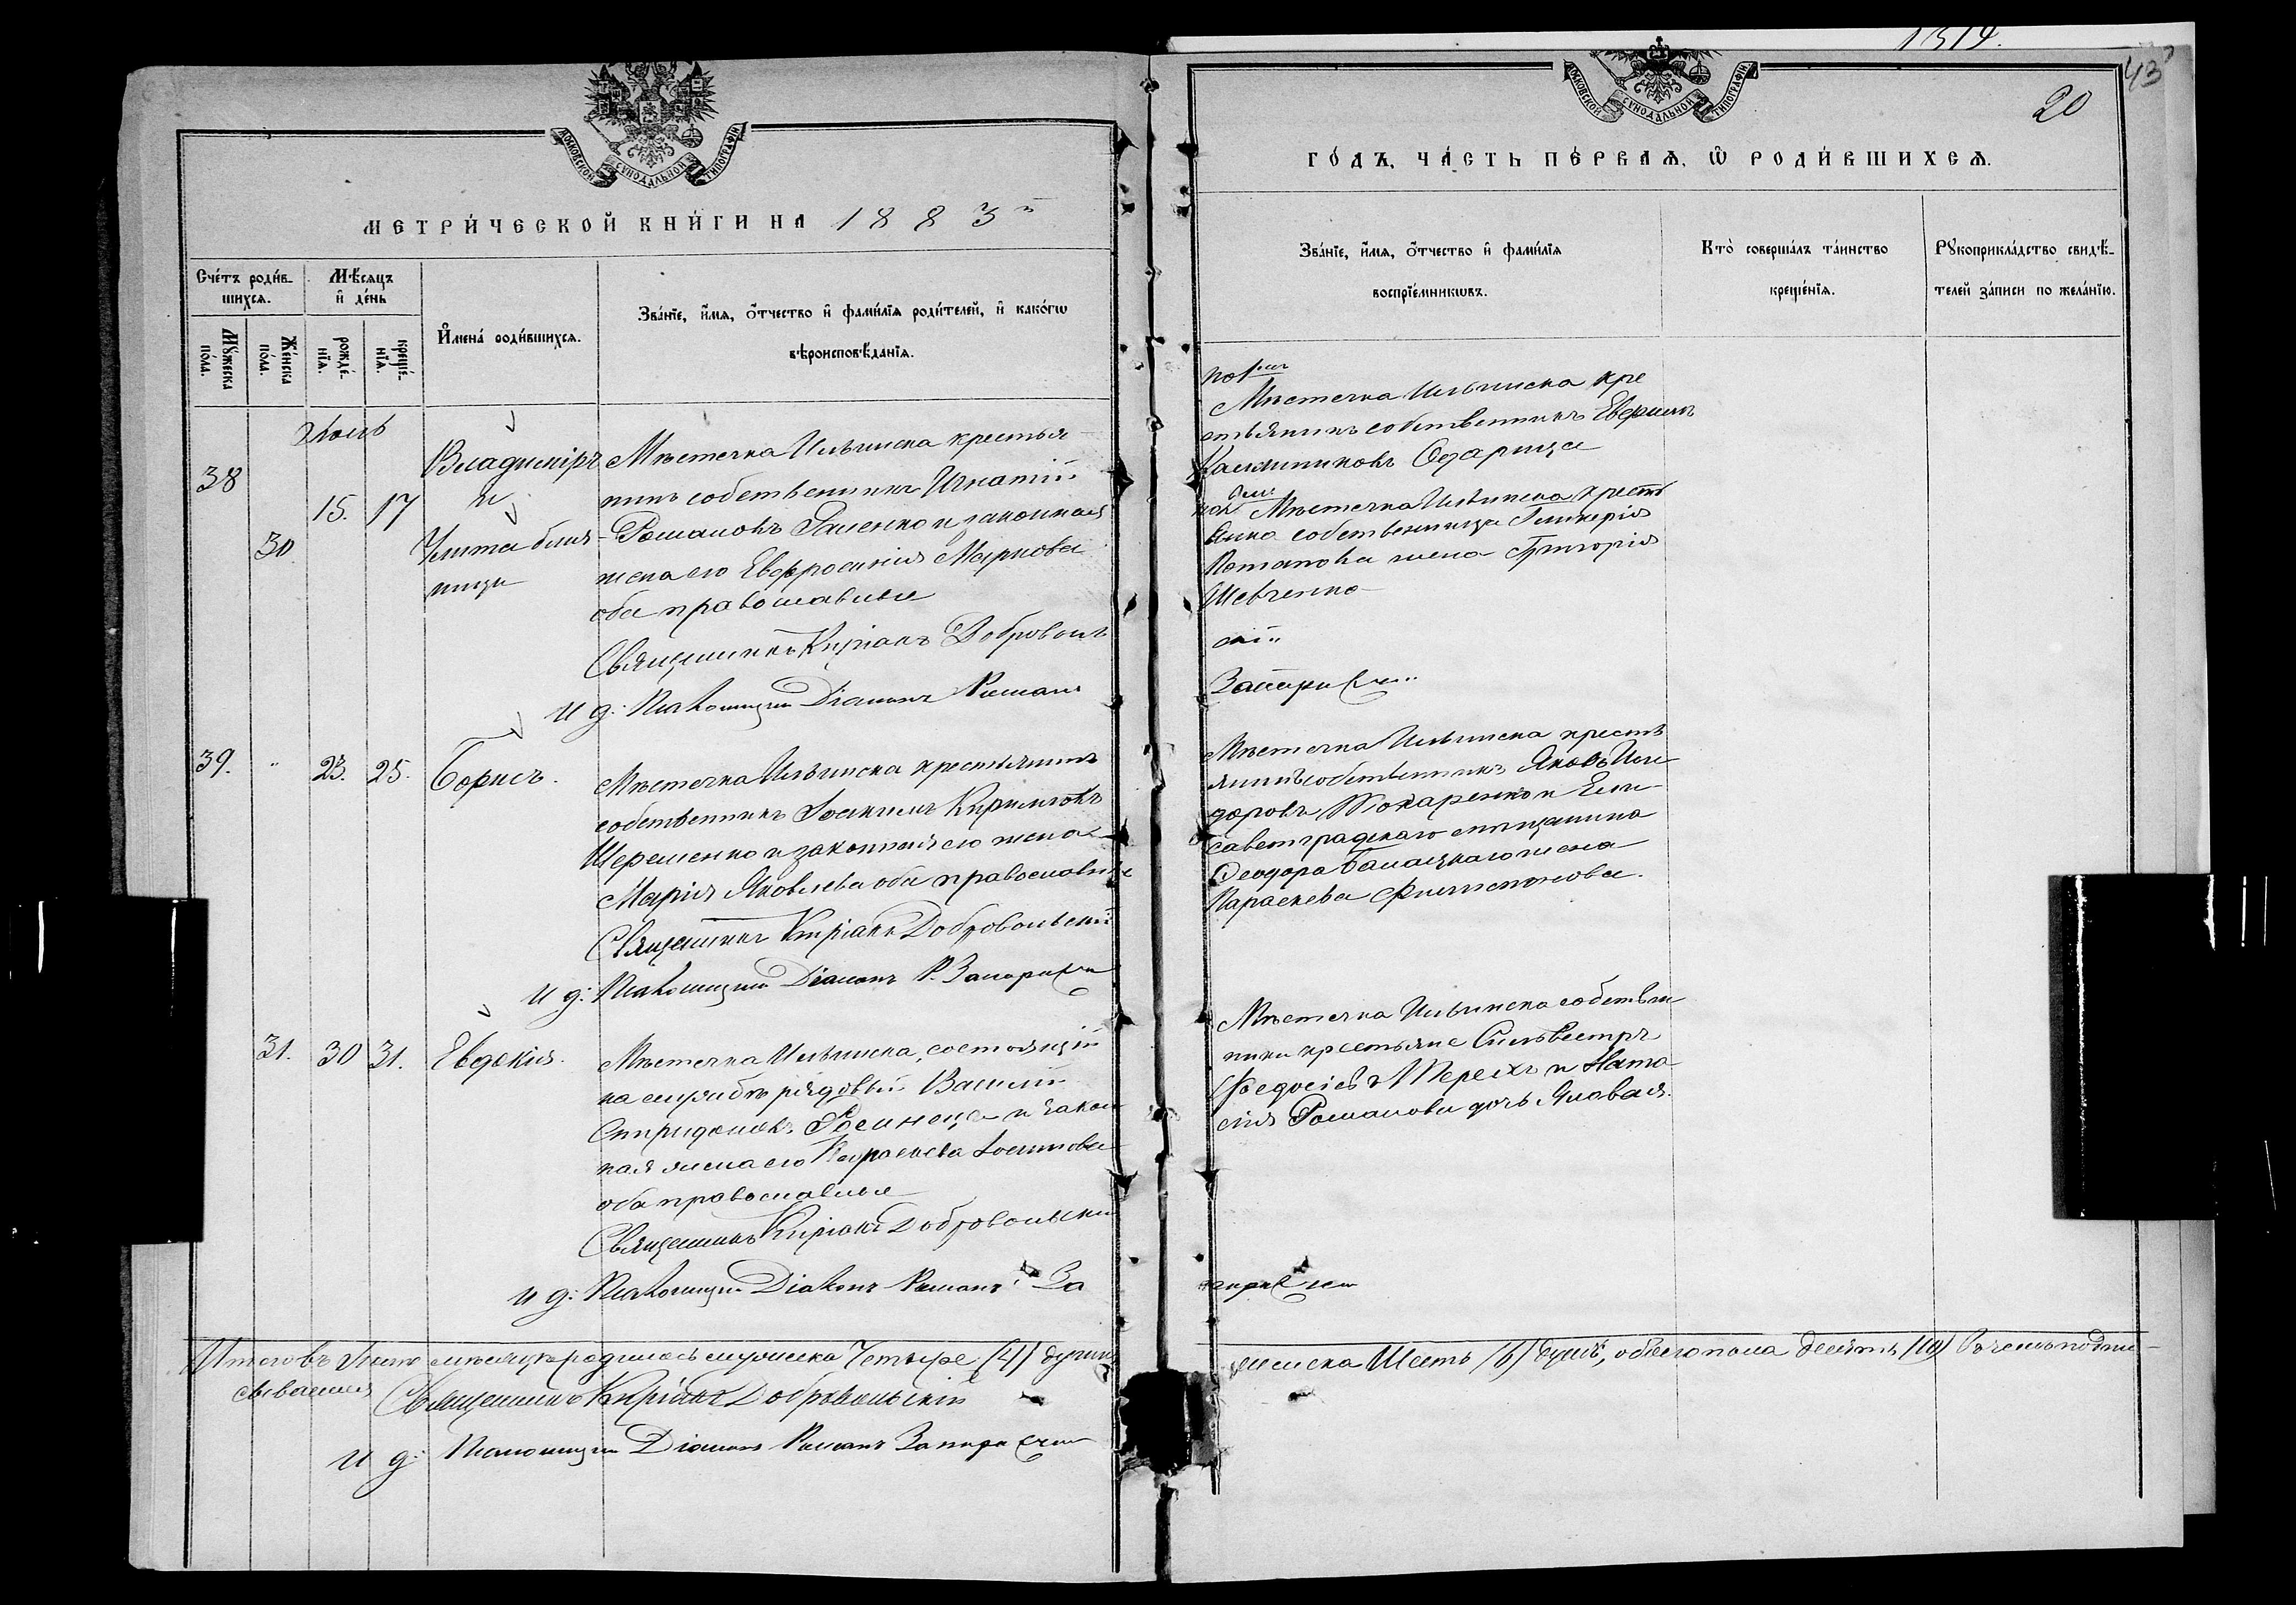 МОСКОВСКОЙ СУНОДАЛЬНОЙ ТИПОГРАФІИ
МЕТРИ́ЧЕСКОЙ КНИ́ГИ НА 1883
Сче́тъ роди́в-
шихся.
Мѣ́сяцъ
и҆ де́нь
Мꙋ́жеска
по́ла.
Же́нска
по́ла.
рожде́-
нїя.
креще́-
нїя.
И҆мена̀ роди́вшихся.
Зва́нїе, и҆́мя, ѻ҆́тчество и҆ фами́лїя роди́телей, и҆ како́гѡ
вѣроисповѣ́данїя.
Іюль
38
30
15. 17
Владиміръ
и
Улита близ-
ницы
Мѣстечка Ильинска крестья-
нинъ собственникъ Игнатій
Романовъ и законная
жена его Евфросинія Маркова
оба православные
Священникъ Киріакъ Добровольъ
И д: Псаломщика Діаконъ Романъ
39. " 23. 25. Борисъ.
Мѣстечка Ильинска крестьянинъ
собственникъ Іоакимъ Кириловъ
Шеременко и законная его жена
Марія Яковлева оба православные
Священникъ Киріакъ Добровольскій
И д: Псаломщика Діаконъ Р.
31. 30 31. Евдокія.
Мѣстечка Ильинска, состоящій
на службѣ рядовый Василій
Спиридоновъ и закон
ная жена его Параскева
оба православные
Священникъ Киріакъ Добровольскій
И д: Псаломщика Діаконъ Романъ За
Итого въ Іюлѣ мѣсяцѣ родилось мужеска Четыре (4) души
сываемся
Священникъ Киріакъ Добровольскій
И д: Псаломщика Діаконъ Романъ
1514.
43
20
МОСКОВСКОЙ СУНОДАЛЬНОЙ ТИПОГРАФІИ
ГО́ДЪ, ЧА́СТЬ ПЕ́РВАЯ, Ѡ҆ РОДИ́ВШИХСЯ.
Зва́нїе, и҆́мя, ѻ҆́тчество и҆ фами́лїя
воспрїе́мникѡвъ.
Кто̀ соверша́лъ та́инство
креще́нїя.
Рꙋкоприкла́дство свидѣ́-
телей за́писи по жела́нїю.
Мѣстечка Ильинска кре
стьянинъ собственникъ
Калинниковъ
Мѣстечка Ильинска кресть
янка собственница Гликерія
Потапова жена Григорія
Шевченко
скій
Мѣстечка Ильинска кресть
янинъ собственникъ Яковъ Иси
доровъ и Ели-
саветградскаго мѣщанина
Ѳеодора жена
Параскева
Мѣстечка Ильинска собствен
ники крестьяне Сильвестръ
Ѳедосіевъ и Ната
лія Романова дочь Яловая.
женска Шесть (6) душъ, обоего пола десять (10) Въ чемъ подпи-